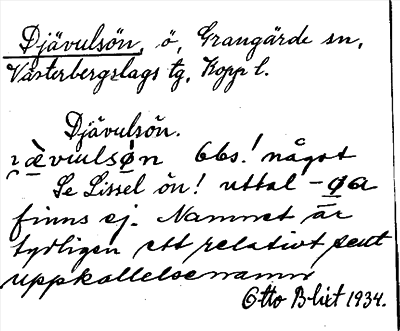 Djävulsön, ö, Grangärde sn,
Västerbergslags tg, Kopp l.
Djävulsön.
ɿævulsøn Obs.! något
Se Lissel ön! uttal -øa
finns ej. Namnet är
tydligen ett relativt sent
uppkallelsenamn
Otto Blixt 1934.